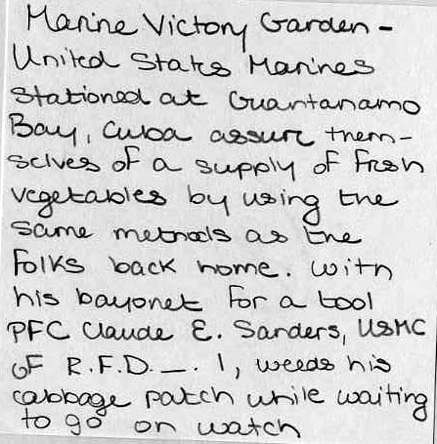 Marine Victory Garden -
United States Marines
stationed at Guantanamo
Bay, Cuba assure them-
selves of a supply of fresh
vegetables by using the
same methods as the
folks back home. With
his bayonet for a tool
PFC Claude E. Sanders, USMC
of R.F.D. _. 1, weeds his
cabbage patch while waiting
to go on watch